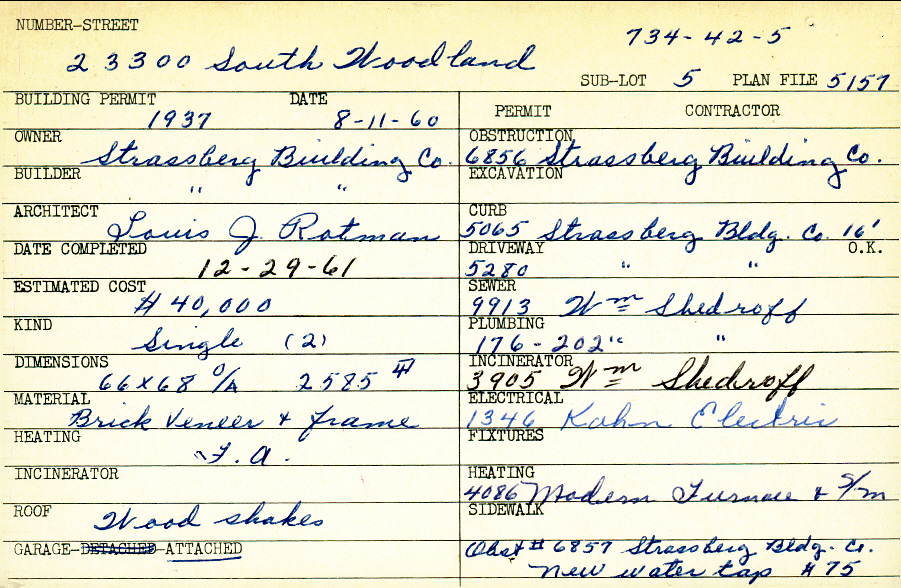 NUMBER-STREET
734-42-5
23300 South Woodland
SUB-LOT 5 PLAN FILE 5157
BUILDING PERMIT DATE
1937 8-11-60
OWNER
Strassberg Building Co.
BUILDER
" "
ARCHITECT
Louis J. Rotman
DATE COMPLETED
12-29-61
ESTIMATED COST
$40,000
KIND
Single (2)
DIMENSIONS
66x68 O/A 2585
MATERIAL
Brick Veneer & frame
HEATING
F.A.
INCINERATOR
ROOF
Wood shakes
GARAGE-DETACHED-ATTACHED
PERMIT CONTRACTOR
OBSTRUCTION
6856 Strassberg Building Co.
EXCAVATION
CURB
5065 Strassberg Bldg. Co. 16'
DRIVEWAY O.K.
5280 " "
SEWER
9913 Wm Shedroff
PLUMBING
176-202 " "
INCINERATOR
3905 Wm Shedroff
ELECTRICAL
1346 Kahn Electric
FIXTURES
HEATING
4086 Modern Furnace & S/m
SIDEWALK
Obst # 6857 Strassberg Bldg. Co.
New water tap $75